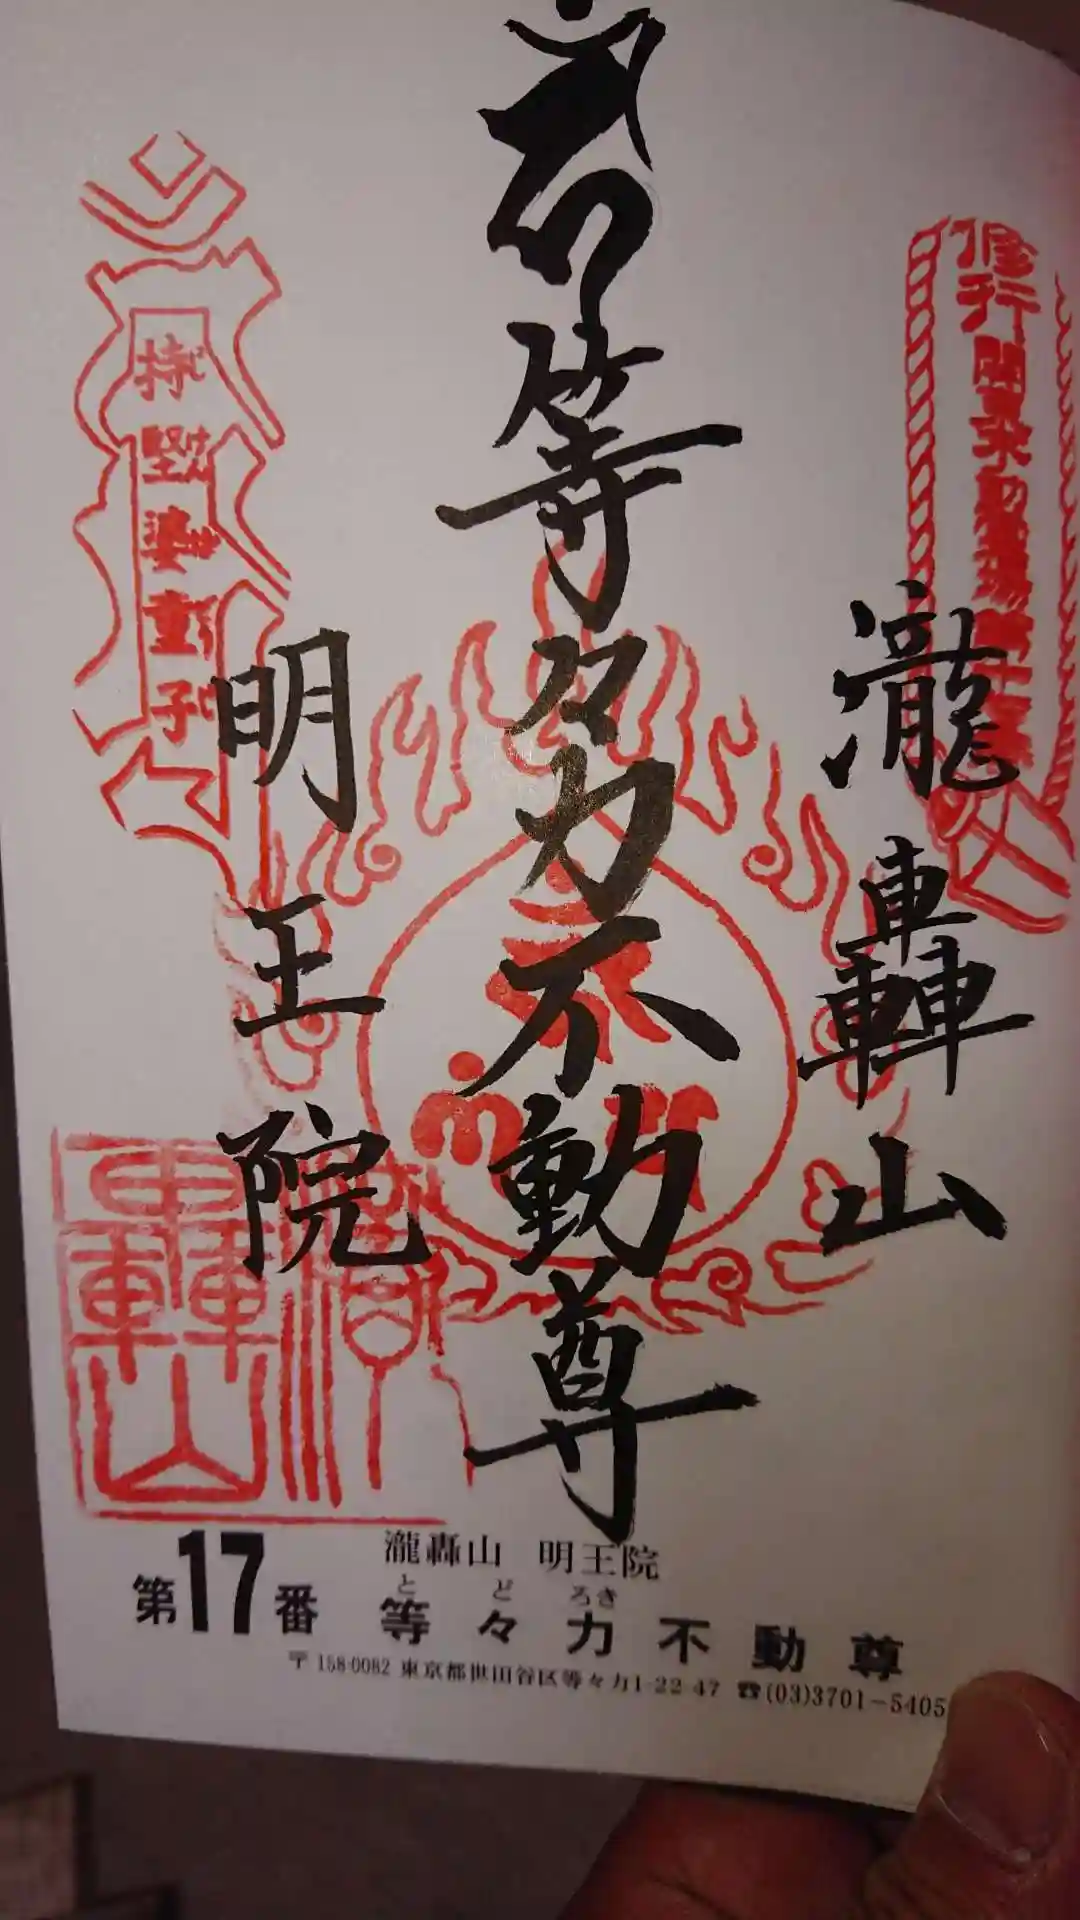 等々力不動尊
瀧轟山
明王院
持堅婆童子
瀧轟山
瀧轟山 明王院
とどろき
第17番 等々力不動尊
〒158-0082 東京都世田谷区等々力1-22-47 ☎(03)3701-5405